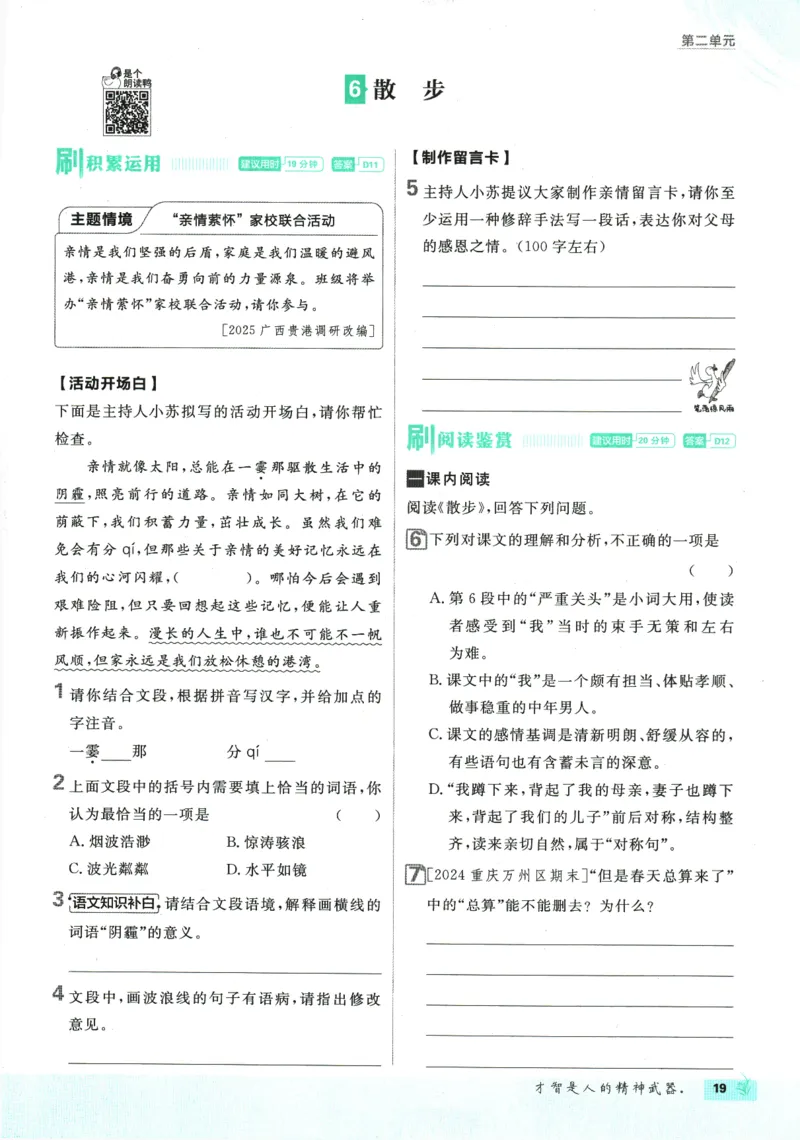 第二单元
是个
朗读鸭
6 散 步
刷 积累运用 建议用时 19分钟 答案 D11
主题情境 “亲情萦怀”家校联合活动
亲情是我们坚强的后盾,家庭是我们温暖的避风
港,亲情是我们奋勇向前的力量源泉。班级将举
办“亲情萦怀”家校联合活动,请你参与。
[2025广西贵港调研改编]
【活动开场白】
下面是主持人小苏拟写的活动开场白,请你帮忙
检查。
亲情就像太阳,总能在一霎那驱散生活中的
阴霾,照亮前行的道路。亲情如同大树,在它的
荫蔽下,我们积蓄力量,茁壮成长。虽然我们难
免会有分 qí,但那些关于亲情的美好记忆永远在
我们的心河闪耀,( )。哪怕今后会遇到
艰难险阻,但只要回想起这些记忆,便能让人重
新振作起来。漫长的人生中,谁也不可能不一帆
风顺,但家永远是我们放松休憩的港湾。
1 请你结合文段,根据拼音写汉字,并给加点的
字注音。
一霎____那 分 qí ____
2 上面文段中的括号内需要填上恰当的词语,你
认为最恰当的一项是 ( )
A. 烟波浩渺 B. 惊涛骇浪
C. 波光粼粼 D. 水平如镜
3 语文知识补白 请结合文段语境,解释画横线的
词语“阴霾”的意义。
4 文段中,画波浪线的句子有语病,请指出修改
意见。
【制作留言卡】
5 主持人小苏提议大家制作亲情留言卡,请你至
少运用一种修辞手法写一段话,表达你对父母
的感恩之情。(100字左右)
笔落惊风雨
刷 阅读鉴赏 建议用时 20分钟 答案 D12
一 课内阅读
阅读《散步》,回答下列问题。
6 下列对课文的理解和分析,不正确的一项是
( )
A. 第6段中的“严重关头”是小词大用,使读
者感受到“我”当时的束手无策和左右
为难。
B. 课文中的“我”是一个颇有担当、体贴孝顺、
做事稳重的中年男人。
C. 课文的感情基调是清新明朗、舒缓从容的,
有些语句也有含蓄未言的深意。
D. “我蹲下来,背起了我的母亲,妻子也蹲下
来,背起了我们的儿子”前后对称,结构整
齐,读来亲切自然,属于“对称句”。
7 [2024重庆万州区期末]“但是春天总算来了”
中的“总算”能不能删去？为什么？
才智是人的精神武器.
19